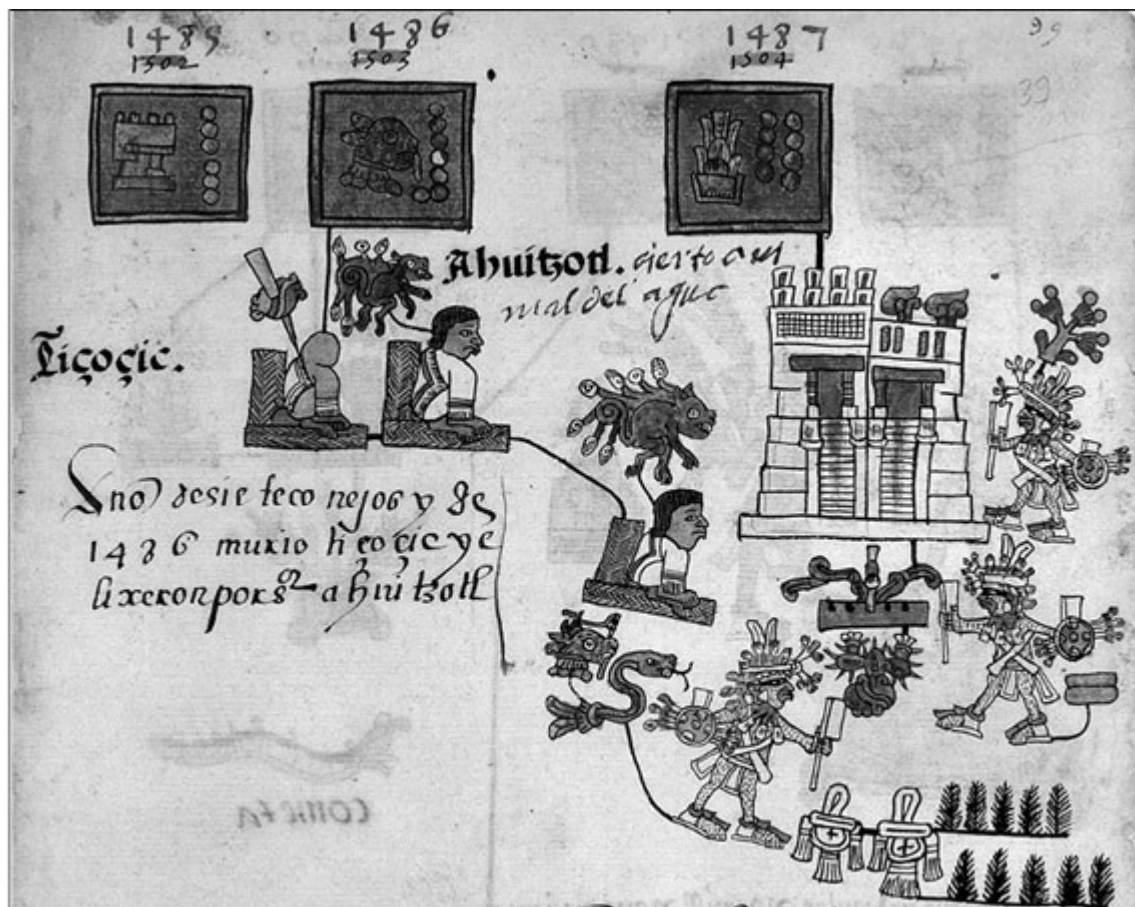 1485 1486 1487
1502 1503 1504
99
39
Ahuitzotl. cierto ani
mal del agua
Tiçoçic.
Año desiete conejos y de
1486 murio tiçoçic ye
lixeron por sr ahuitzotl